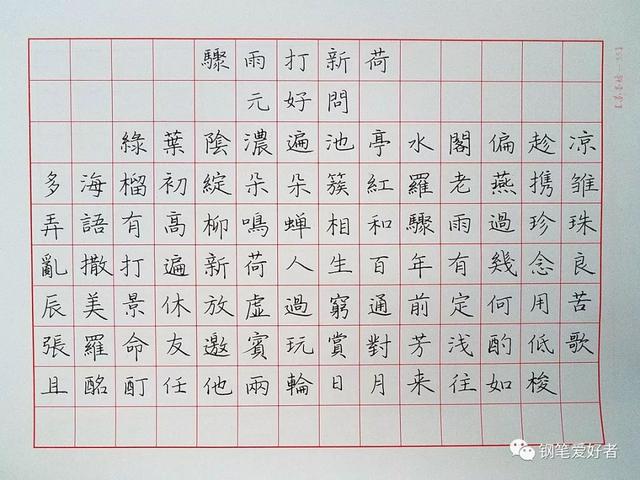 驟雨打新荷
元好問
綠葉陰濃遍池亭水閣偏趁涼
多海榴初綻朵朵簇紅羅老燕携雏
弄語有高柳鳴蝉相和驟雨過珍珠
亂撒打遍新荷人生百年有幾念良
辰美景休放虛過窮通前定何用苦
張羅命友邀賓玩賞對芳浅酌低歌
且酩酊任他兩輪日月来往如梭
钢笔爱好者